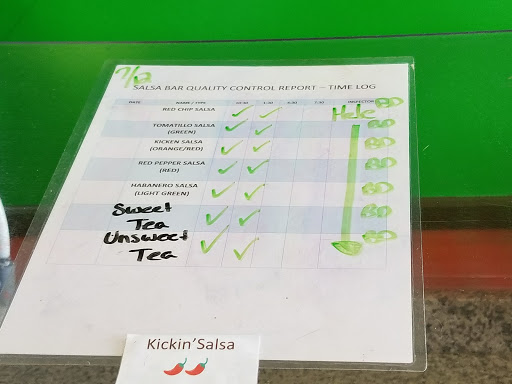 7/2
SALSA BAR QUALITY CONTROL REPORT – TIME LOG
DATE NAME / TYPE 10:30 1:30 4:30 7:30 INSPECTOR
RED CHIP SALSA ✓ ✓ BD
TOMATILLO SALSA ✓ ✓ BD
(GREEN)
KICKEN SALSA ✓ ✓ BD
(ORANGE/RED)
RED PEPPER SALSA ✓ ✓ BD
(RED)
HABANERO SALSA ✓ ✓ BD
(LIGHT GREEN)
Sweet ✓ ✓ BD
Tea
Unsweet ✓ ✓ BD
Tea
Kickin'Salsa